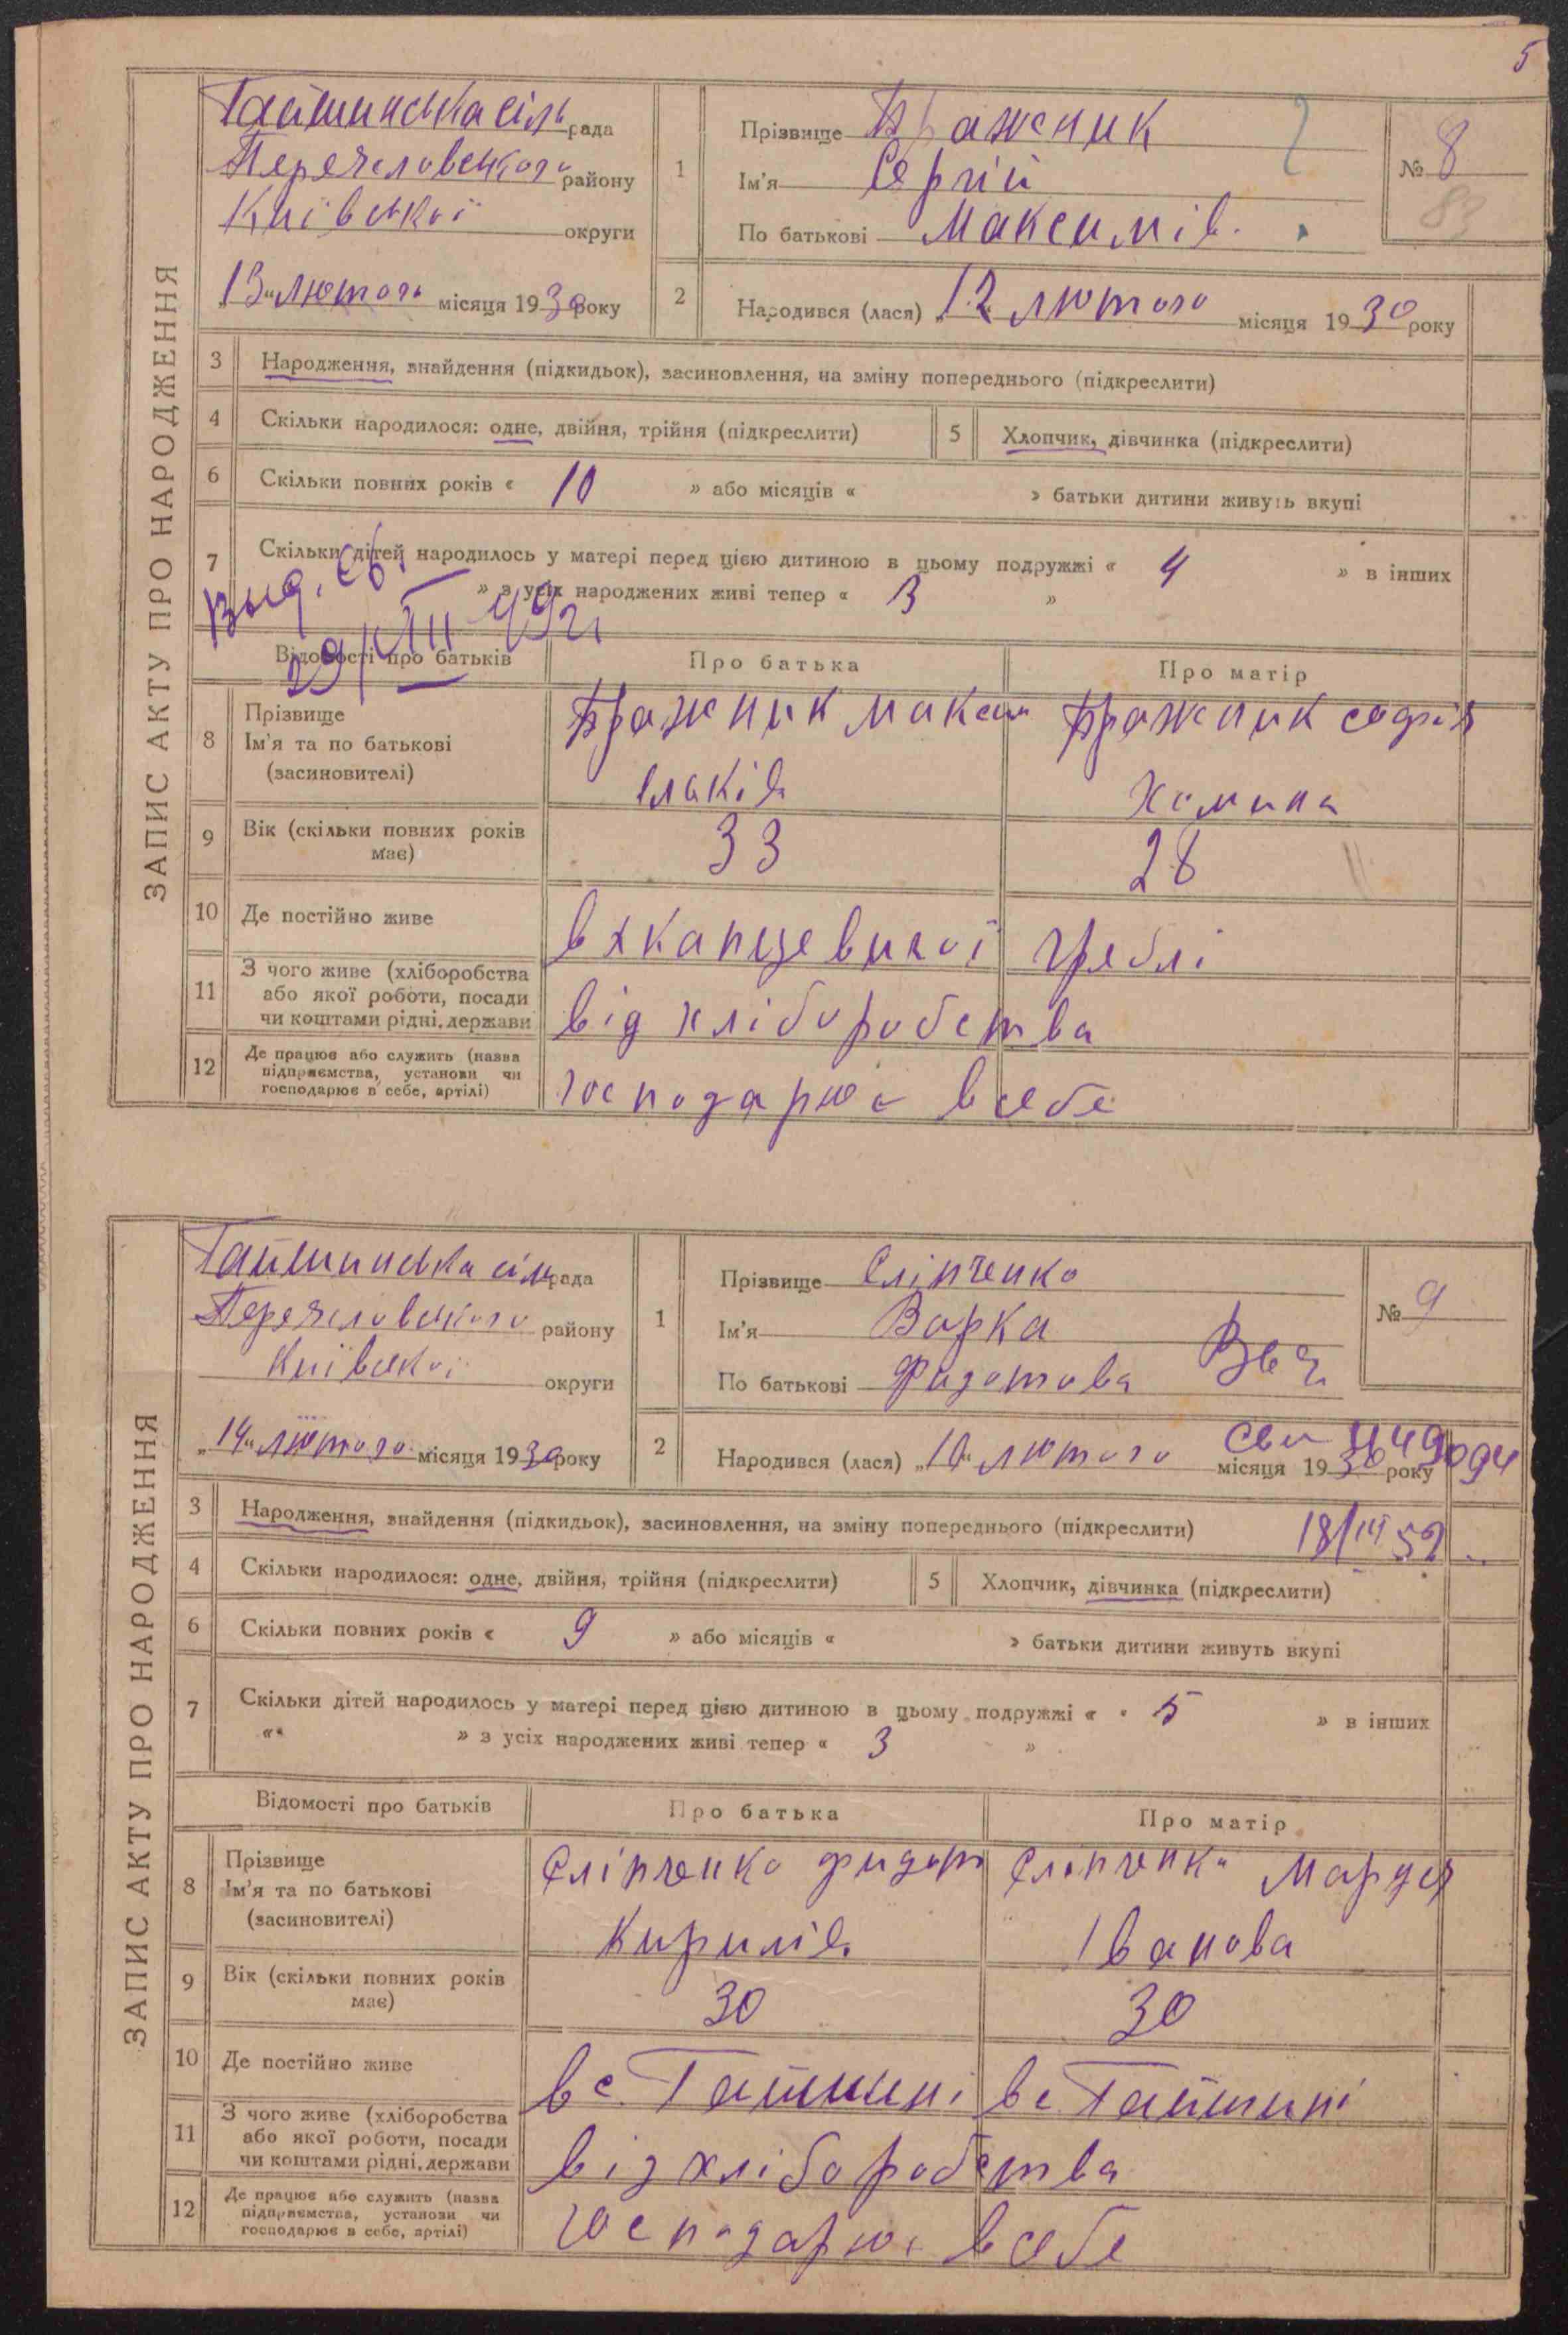 5
ЗАПИС АКТУ ПРО НАРОДЖЕННЯ
Гайшинська сіль рада
Переяславського району
Київської округи
„13“ лютого місяця 1930 року
1 Прізвище Бражник
Ім'я Сергій
По батькові Максимів.
№ 8
83
2 Народився (лася) „12“ лютого місяця 1930 року
3 Народження, знайдення (підкидьок), засиновлення, на зміну попереднього (підкреслити)
4 Скільки народилося: одне, двійня, трійня (підкреслити) 5 Хлопчик, дівчинка (підкреслити)
6 Скільки повних років « 10 » або місяців « » батьки дитини живуть вкупі
7 Скільки дітей народилось у матері перед цією дитиною в цьому подружжі « 4 » в інших
» з усіх народжених живі тепер « 3 »
Выд. св.
29/VIII 49 г.
Відомості про батьків Про батька Про матір
8 Прізвище Ім'я та по батькові (засиновителі)
Бражник Максим Бражник Софія
Ілаків Хомина
9 Вік (скільки повних років має) 33 28
10 Де постійно живе в х Канцевикої Греблі
11 З чого живе (хліборобства або якої роботи, посади чи коштами рідні, держави від хліборобства
12 Де працює або служить (назва підприємства, установи чи господарює в себе, артілі) господарює в себе
ЗАПИС АКТУ ПРО НАРОДЖЕННЯ
Гайшинська сіль рада
Переяславського району
Київської округи
„14“ лютого місяця 1930 року
1 Прізвище Сліпченко
Ім'я Варка
По батькові Федотова
№ 9
2 Народився (лася) „10“ лютого місяця 1930 року
3 Народження, знайдення (підкидьок), засиновлення, на зміну попереднього (підкреслити)
4 Скільки народилося: одне, двійня, трійня (підкреслити) 5 Хлопчик, дівчинка (підкреслити)
6 Скільки повних років « 9 » або місяців « » батьки дитини живуть вкупі
7 Скільки дітей народилось у матері перед цією дитиною в цьому подружжі « 5 » в інших
« » з усіх народжених живі тепер « 3 »
Відомості про батьків Про батька Про матір
8 Прізвище Ім'я та по батькові (засиновителі)
Сліпченко Федот Сліпченко Марфа
Кирилів Іванова
9 Вік (скільки повних років має) 30 30
10 Де постійно живе в с. Гайшині в с Гайшині
11 З чого живе (хліборобства або якої роботи, посади чи коштами рідні, держави від хліборобства
12 Де працює або служить (назва підприємства, установи чи господарює в себе, артілі) господарює в себе